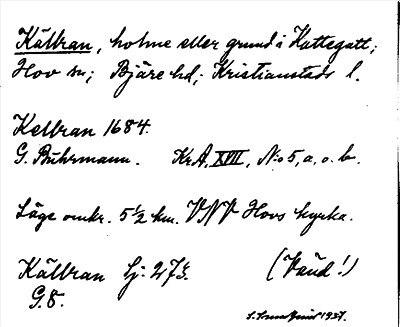 Källran, holme eller grund i Kattegatt;
Hov sn; Bjäre hd; Kristianstads l.
Kellran 1684.
G. Buhrmann. KrA, XVII, No 5, a, o. b.
Läge omkr. 5 1/2 km. VNV Hovs kyrka.
Källran Sj. 273.
(Vaud!)
G.8.
1937.